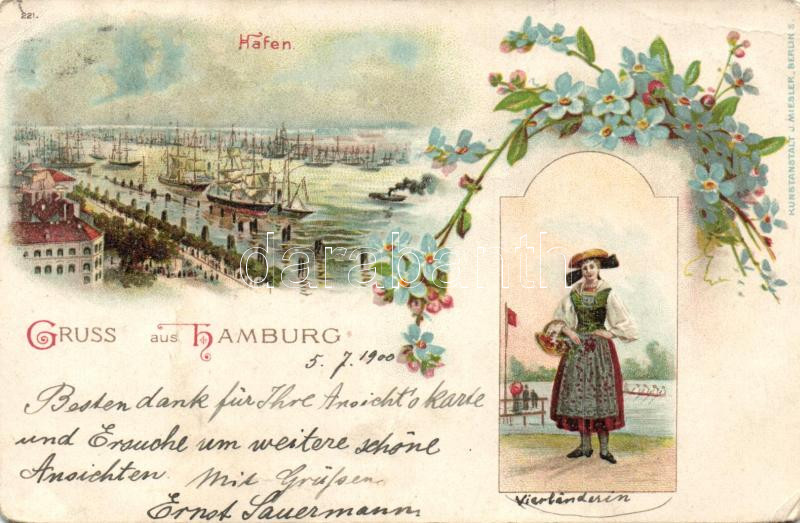 221.
Hafen.
KUNSTANSTALT J. MIESLER, BERLIN S.
darabanth.com
GRUSS aus HAMBURG
5. 7. 1900
Besten dank für Ihre Ansicht's karte
und Ersuche um weitere schöne
Ansichten. Mit Grüßen
Ernst Sauermann
Vierländerin